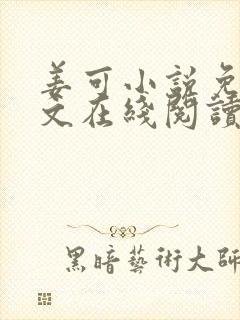 姜可小说免
文在綫閱讀
黑暗藝術大師